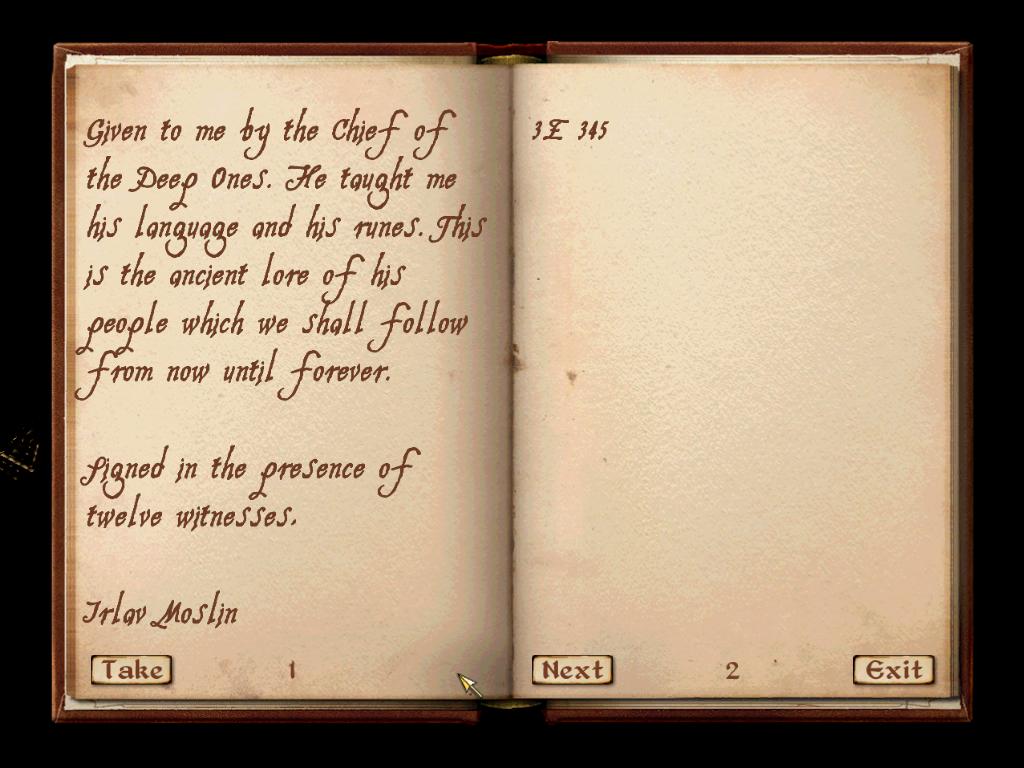 Given to me by the Chief of
the Deep Ones. He taught me
his language and his runes. This
is the ancient lore of his
people which we shall follow
from now until forever.
Signed in the presence of
twelve witnesses.
Irlav Moslin
3E 345
Take
1
Next
2
Exit